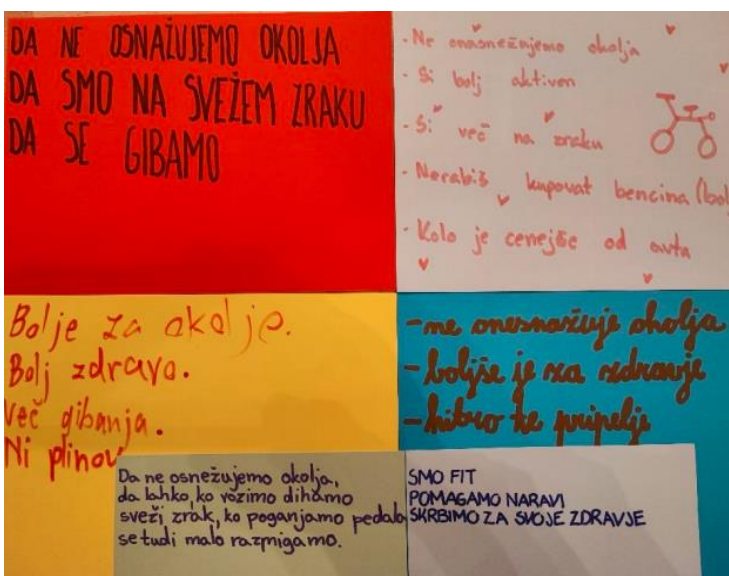 DA NE OSNAŽUJEMO OKOLJA
DA SMO NA SVEŽEM ZRAKU
DA SE GIBAMO
- Ne onasnežnjemo okolja
- Si bolj aktiven
- Si več na zraku
- Nerabiš kupovat bencina (bol
- Kolo je cenejše od avta
Bolje za okolje.
Bolj zdravo.
Več gibanja.
Ni plinov
- ne onesnažuje okolja
- boljše je za zdravje
- hitro te pripelje
Da ne osnežujemo okolja,
da lahko, ko vozimo dihamo
sveži zrak, ko poganjamo pedala
se tudi malo razmigamo.
SMO FIT
POMAGAMO NARAVI
SKRBIMO ZA SVOJE ZDRAVJE